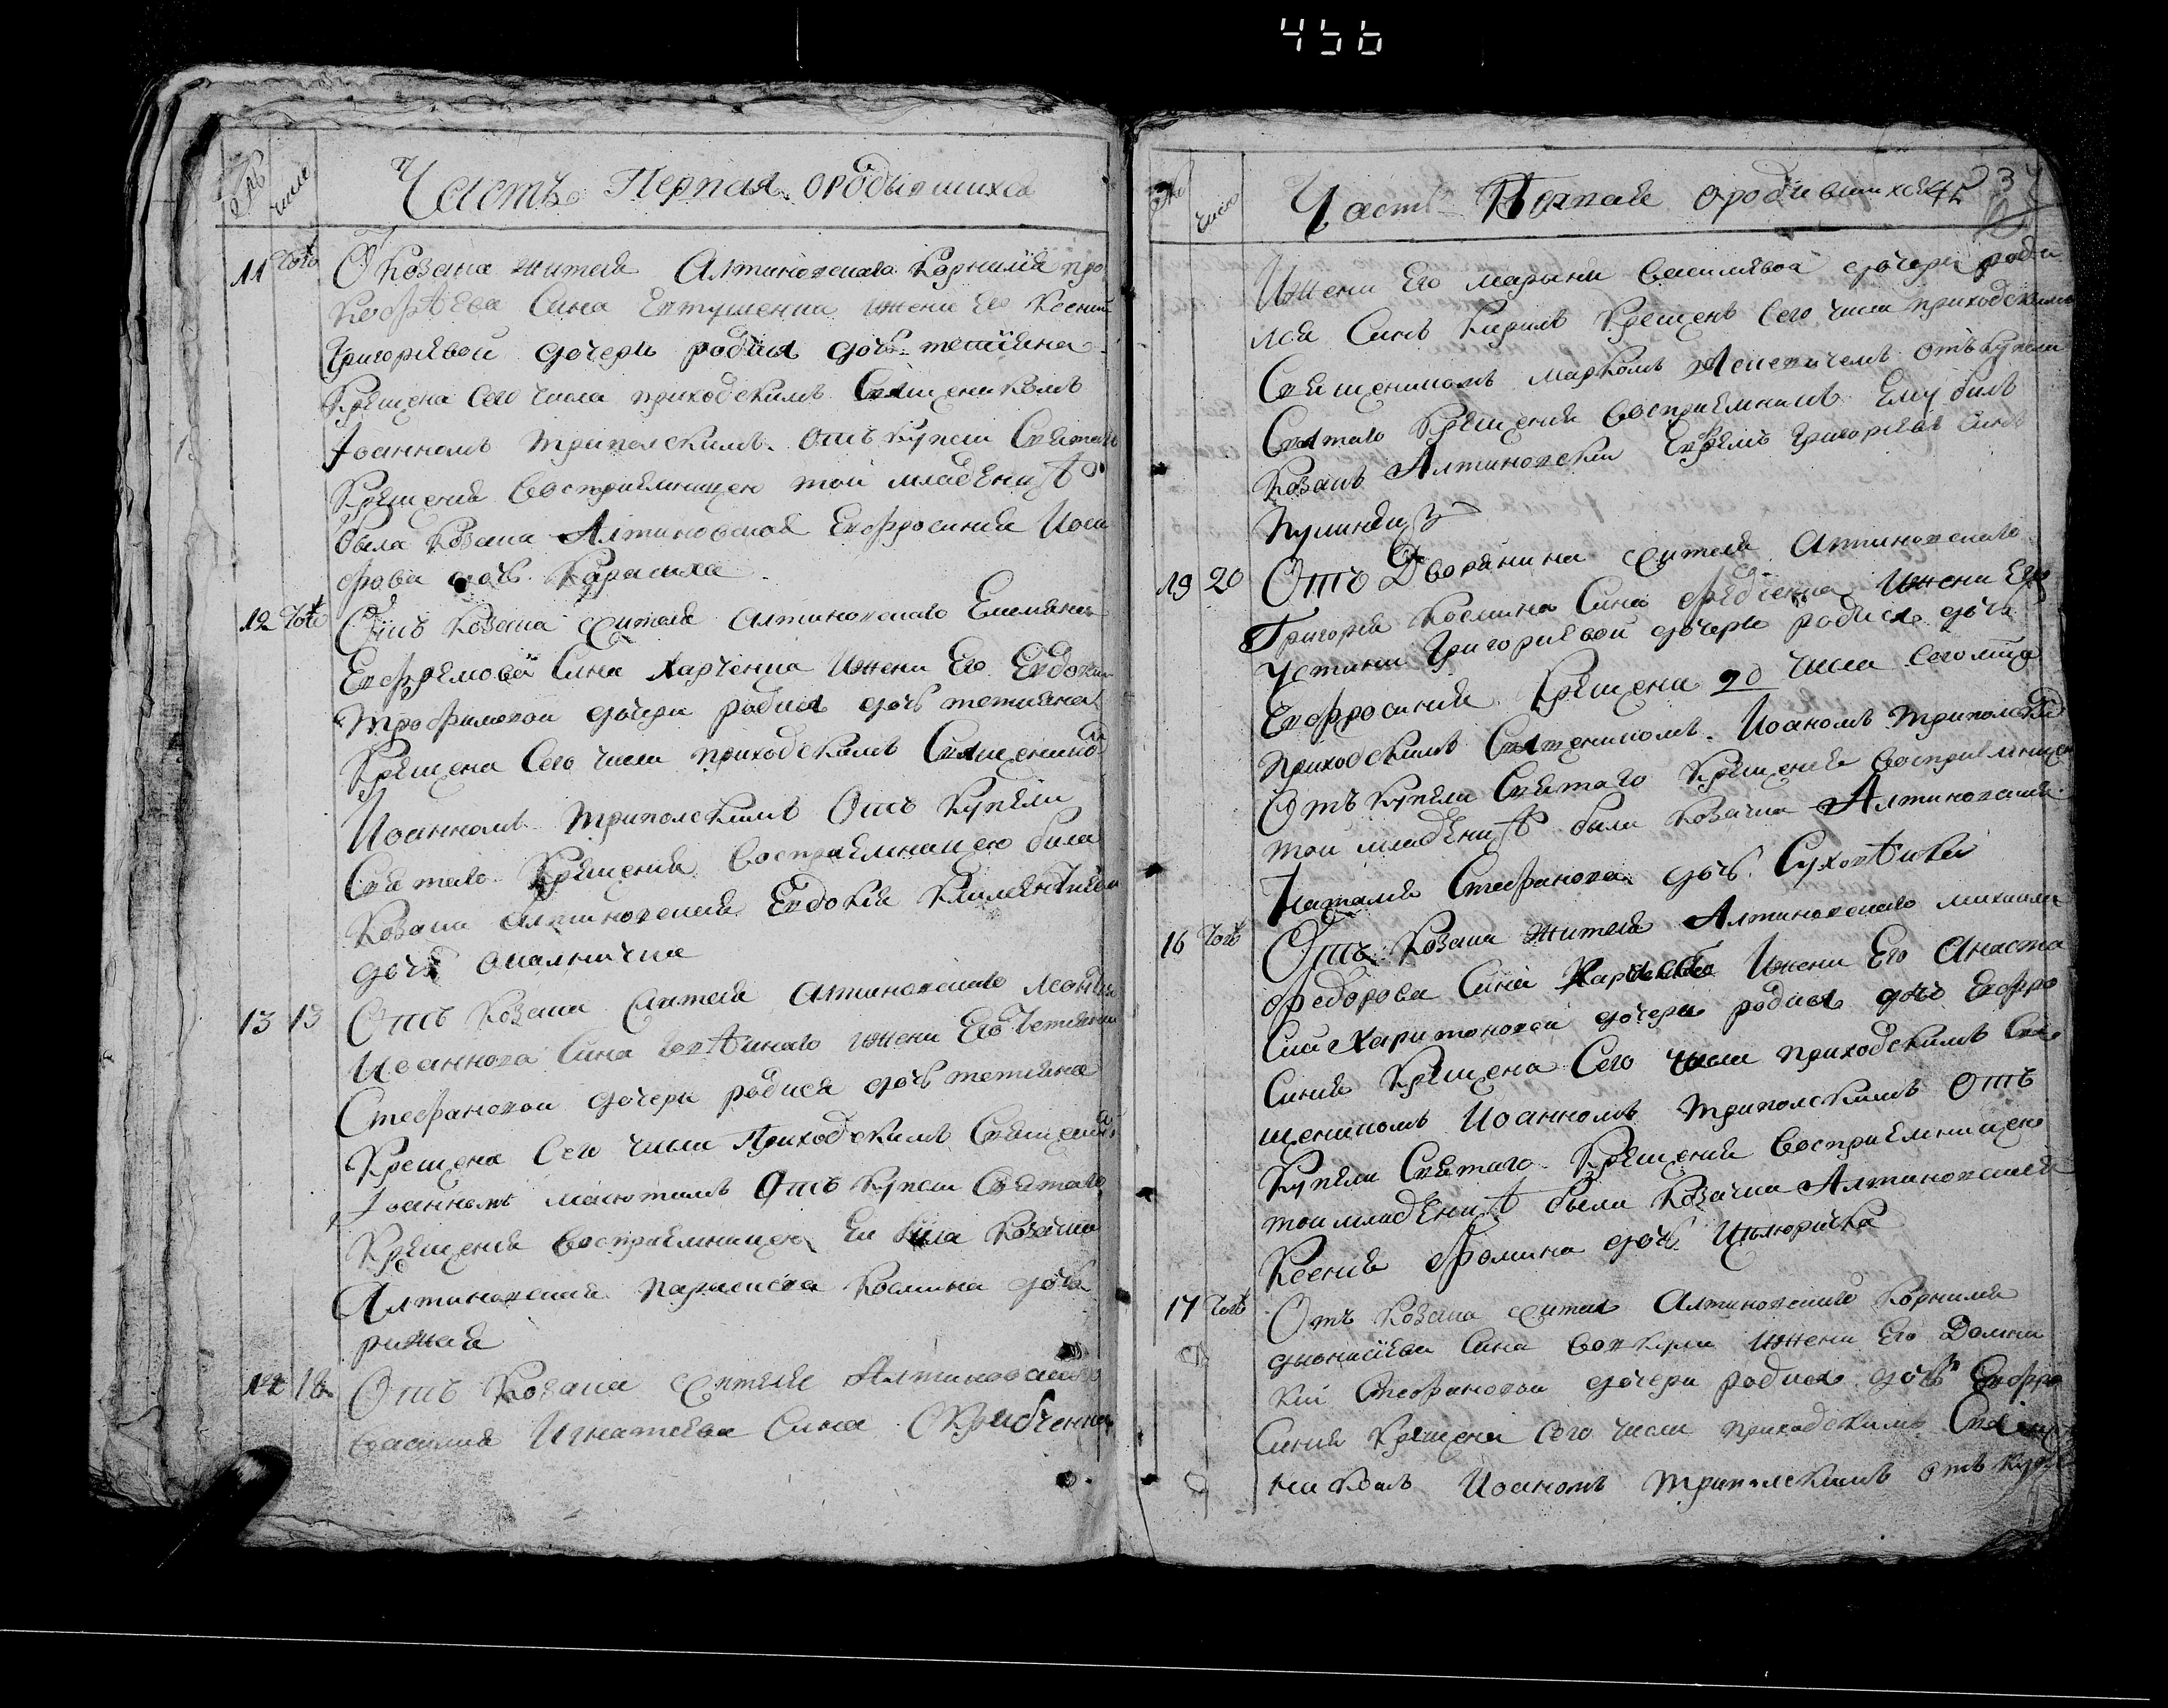 456
№ числа
Часть Первая о родившихся
11 Тогож О козака жителя Алтиновского Корнилия про
кофіева сина Евтушенка и жени его Ксении
Григориевой дочери родися дочь тетияна
Крещена сего числа приходскимъ Священикомъ
Іоанномъ Триполскимъ. отъ купели Святаго
Крещения восприемницею той младеници
была козачка Алтиновская Евфросиния Иоси
фова дочь Карасиха
12 Тогож Отъ козака жителя Алтиновского Емелиана
Евфремова сина Харченка и жени его Евдокии
Трофимовои дочери родися дочь тетияна
Крещена сего числа приходскимъ Священико
Иоанномъ Триполскимъ Отъ купели
Святаго Крещения восприемницею била
козачка Алтиновская Евдокия
дочь
13 13 Отъ козака жителя Алтиновского Леонтия
Иоаннова сина и жени его
Стефановои дочери родися дочь тетияна
Крещена сего числа Приходскимъ Священи
Іоанномъ Отъ купели Святаго
Крещения восприемницею ей била козачка
Алтиновская параскева Космина дочь
14 18 Отъ козака жителя Алтиновского
василия Игнатиева сина
№ число
Часть Первая о родившихся 45 237
И жени его марыни василиевой дочери роди
лся синъ Кирилъ крещенъ сего числа приходскимъ
Священикомъ маркомъ отъ купели
Святаго Крещения восприемникъ ему билъ
козакъ Алтиновски Евфремъ Григориевъ синъ
19 20 Отъ Дворянина жителя Алтиновского
Григория Космина сина и жени его
Устини Григориевой дочери родися дочь
Евфросиния Крещена 20 числа сего мця
приходскимъ Священикомъ Иоаномъ Триполски
Отъ купели Святаго Крещения восприемницею
той младеници била козачка Алтиновская
Наталия Стефанова дочь
16 Тогож Отъ козака жителя Алтиновского михаила
федорова сина и жени его Анаста
сии Харитоновой дочери родися дочь Евфро
синия Крещена сего числа приходскимъ Свя
щеникомъ Иоанномъ Триполскимъ Отъ
купели Святаго Крещения восприемницею
той младеници была козачка Алтиновская
Ксения Фомина дочь
17 Тогож Отъ козака жителя Алтиновского Корнилия
дионисиева сина и жени его Домни
кии Стефановои дочери родися дочь Евфро
синия Крещена сего числа приходскимъ Священ
никомъ Иоаномъ Триполскимъ отъ купе